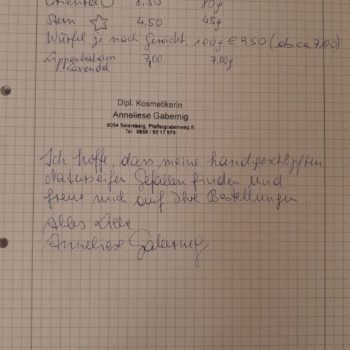 Oriental 8,50 80g
Stern 4,50 45g
Würfel je nach Gewicht 100g € 9,50 (ab ca 7,00)
Lippenbalsam 7,00 7,00g
Lavendel
Dipl. Kosmetikerin
Anneliese Gabernig
8054 Seiersberg, Pfeifergrabenweg 6
Tel. 0650 / 92 17 979
Ich hoffe, dass meine handgeschöpften
Naturseifen Gefallen finden und
freue mich auf Ihre Bestellungen
Alles Liebe
Anneliese Gabernig